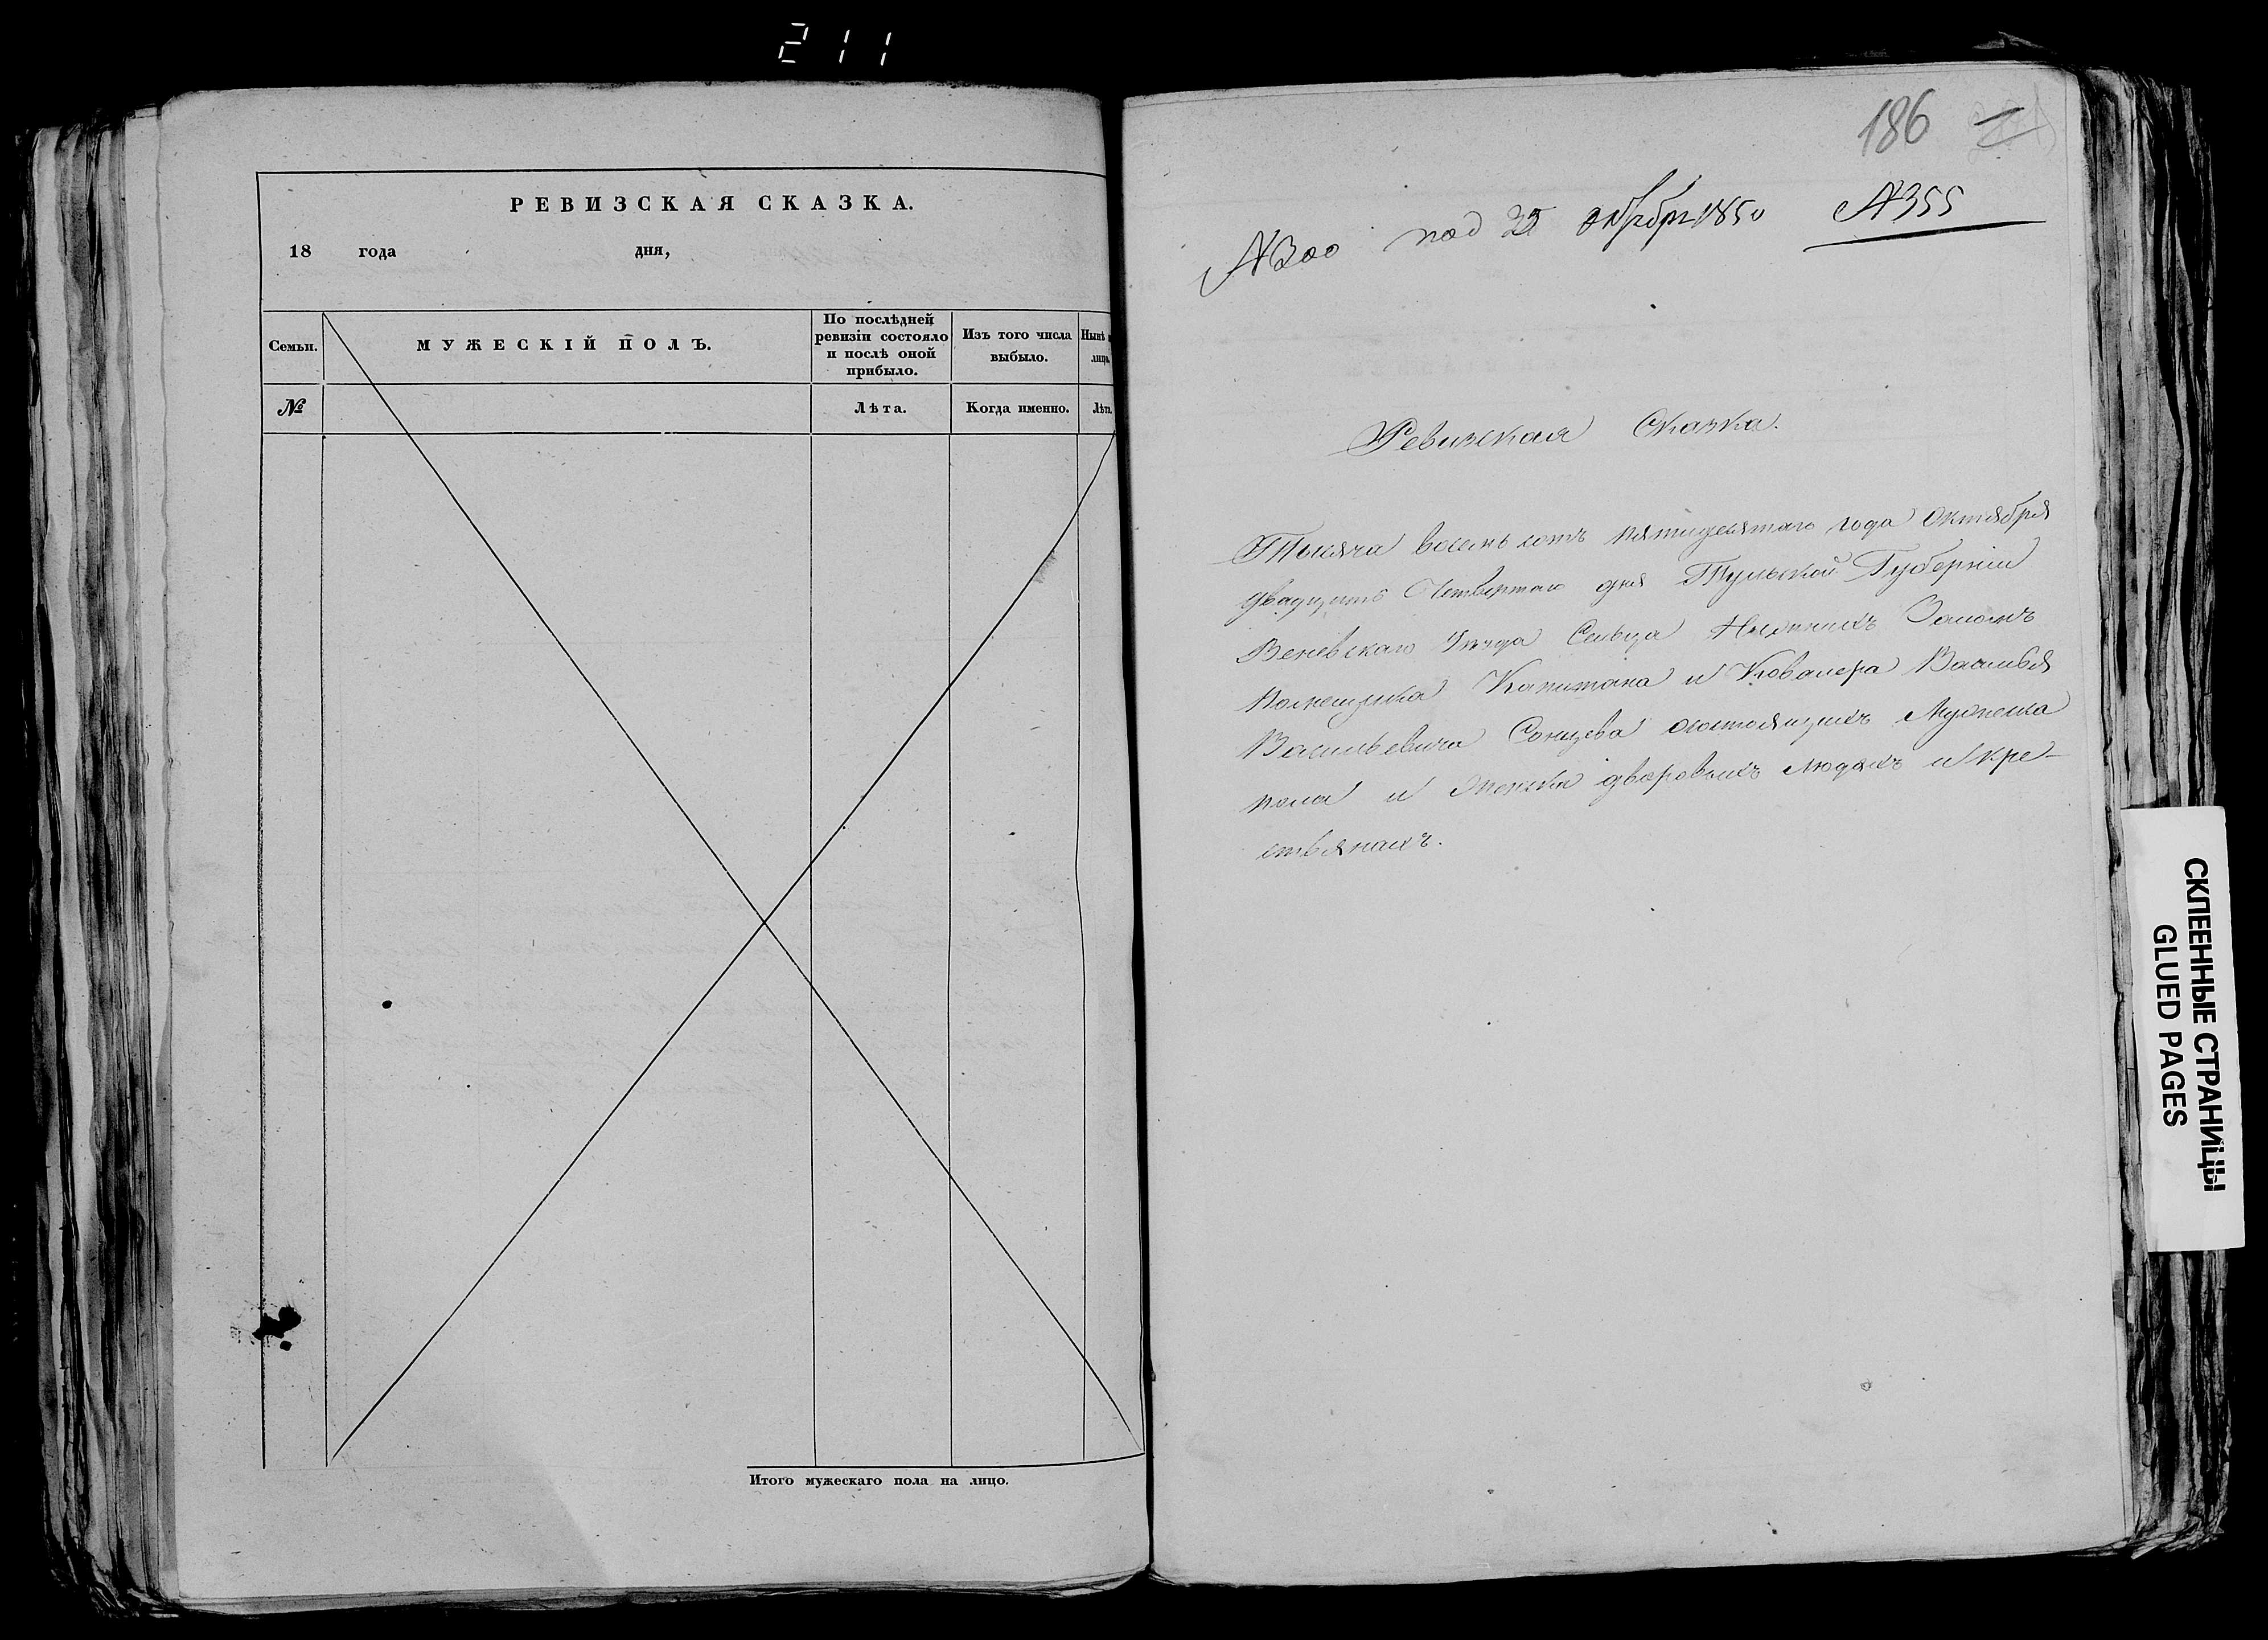 211
РЕВИЗСКАЯ СКАЗКА.
18 года дня,
Семьи.
МУЖЕСКІЙ ПОЛЪ.
По послѣдней ревизіи состояло и послѣ оной прибыло.
Изъ того числа выбыло.
Нынѣ
лицо.
№
Лѣта.
Когда именно.
Лѣта.
Итого мужескаго пола на лицо.
186
№ 300 под 25 октября 1850 № 355
Ревизская Сказка.
Тысяча восемьсотъ пятидесятаго года Октября
двадцать Четвертаго дня Тульской Губерніи
Веневскаго Уезда Сельца
помещика Капитана и Кавалера Василья
Васильевича Сонцева состоящихъ Мужеска
пола и женска дворовыхъ людяхъ и кре-
стьянахъ.
СКЛЕЕННЫЕ СТРАНИЦЫ
GLUED PAGES